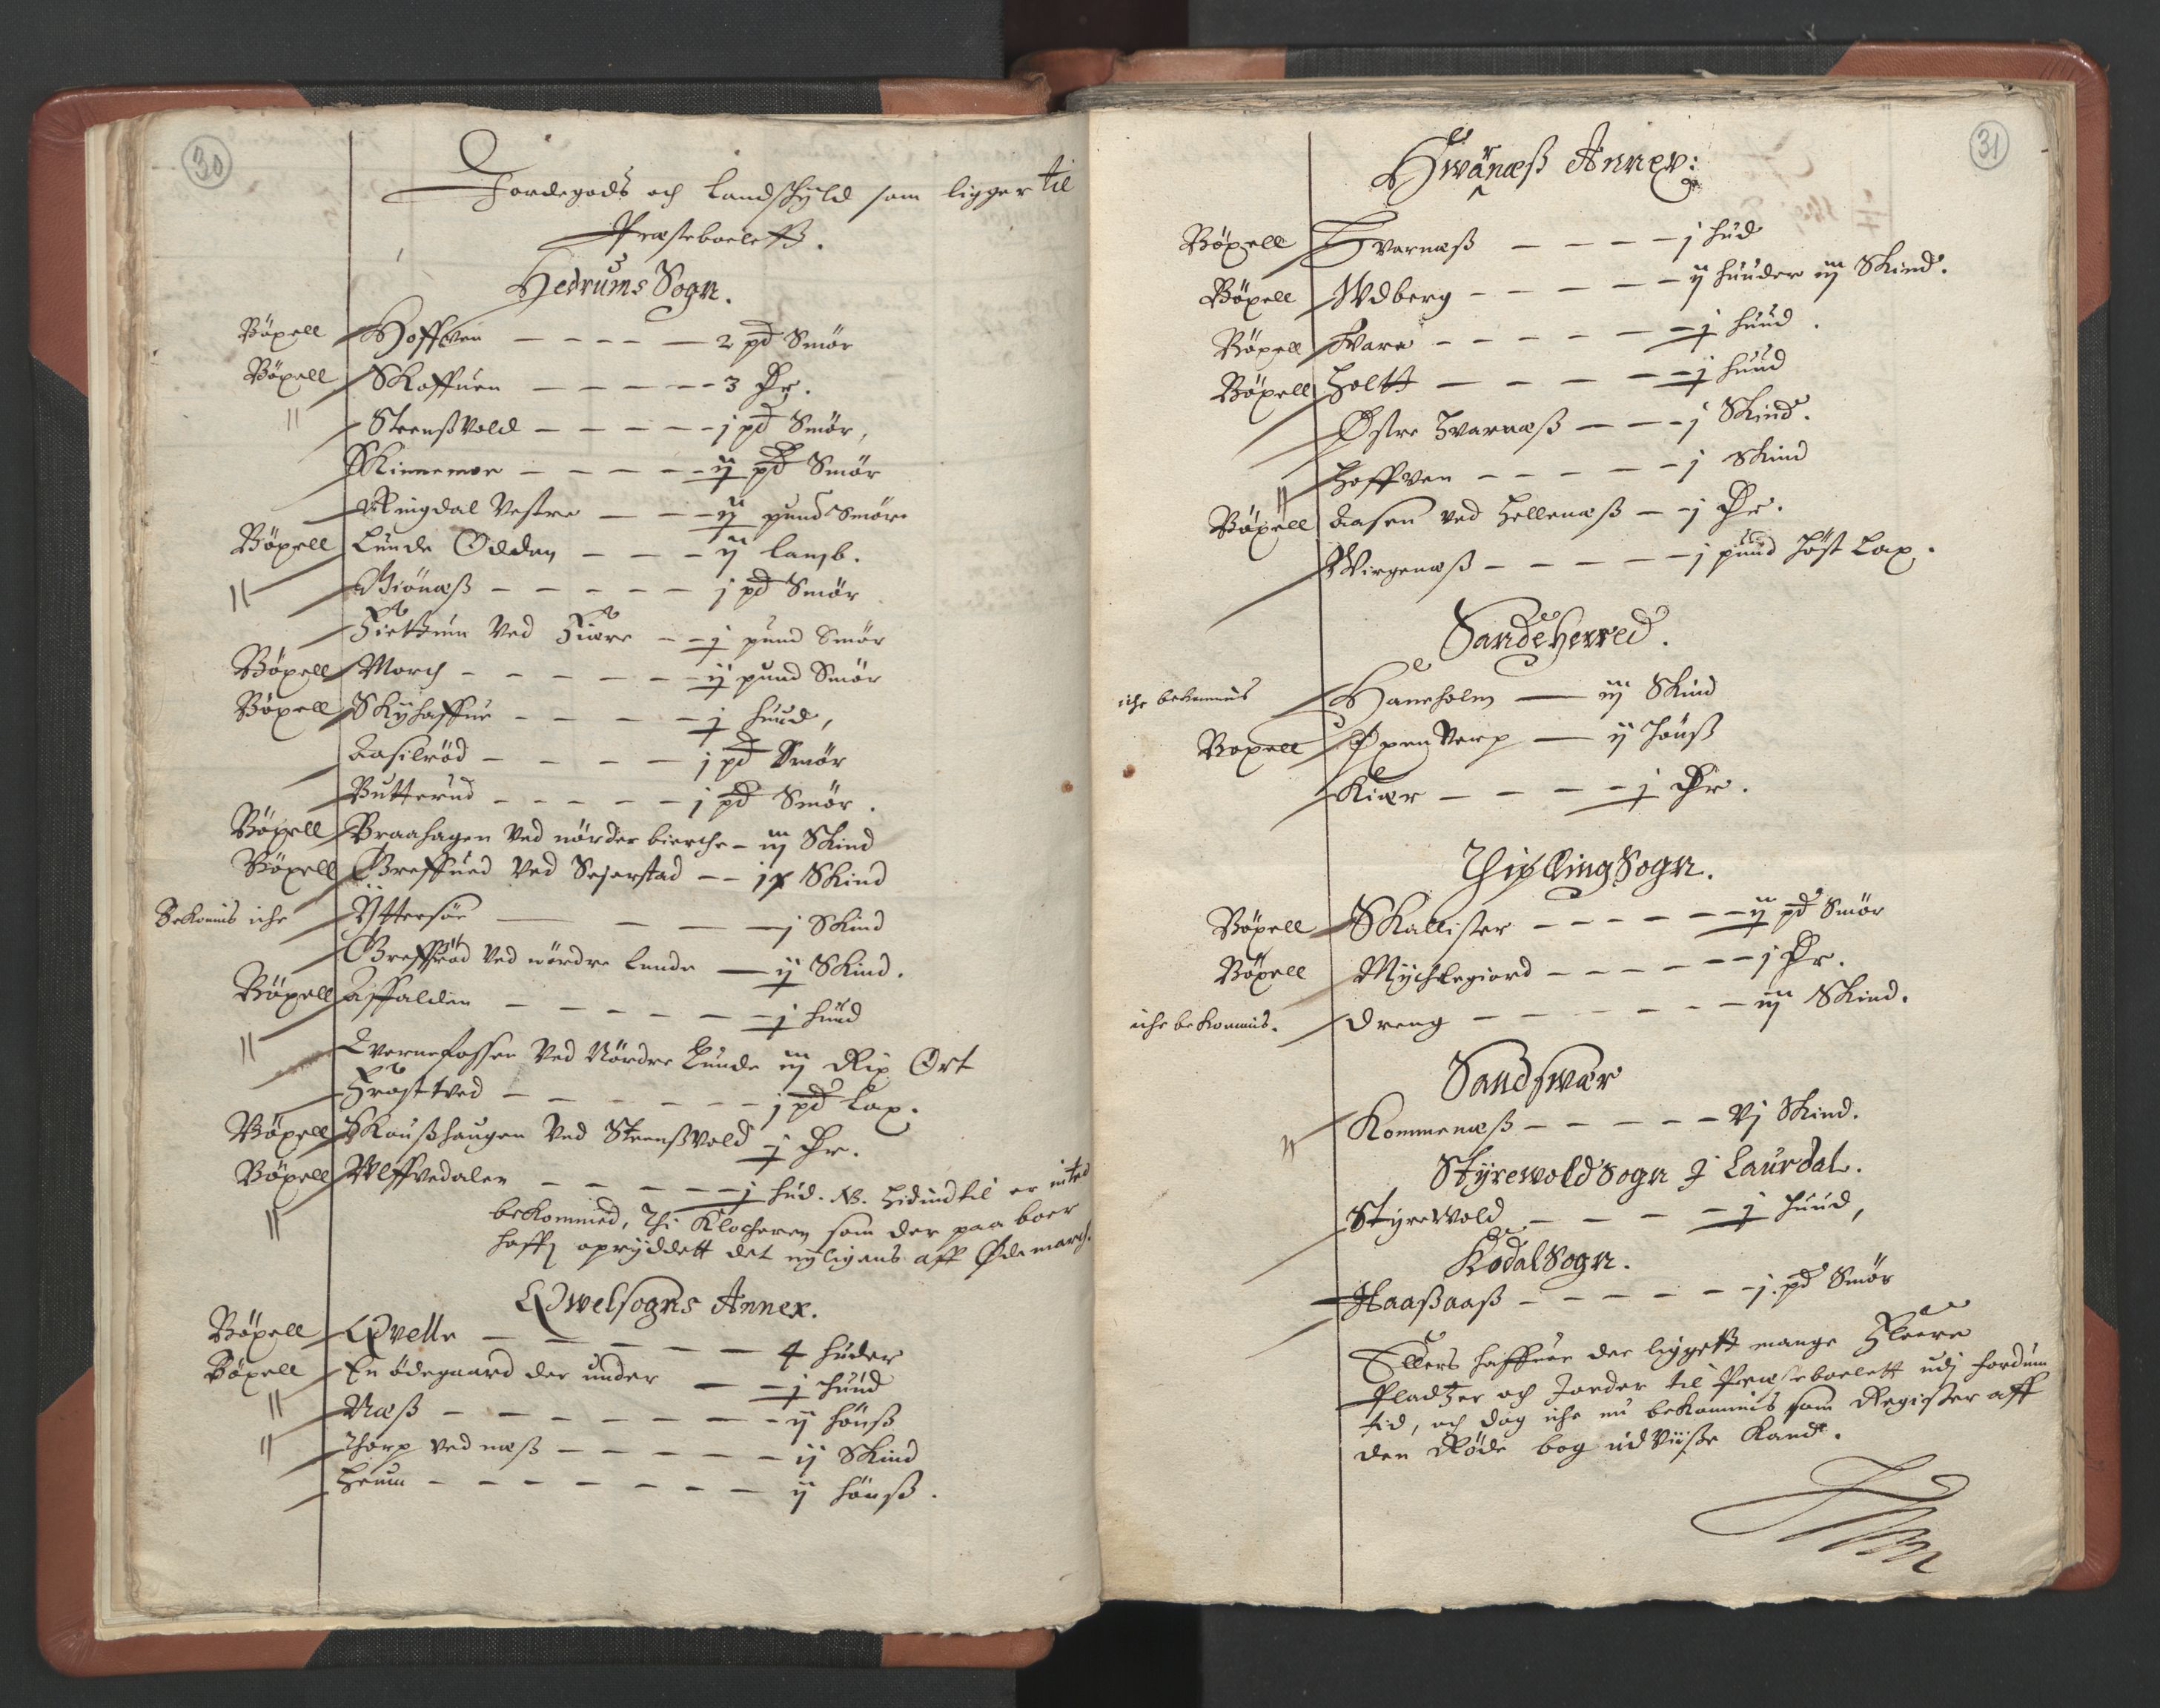 30
Jordegods och Landschyld som ligger til
Præsteboelett.
Hedrums Sogn.
Böxell Hoffven — 2 pd Smör
Böxell Skoffuen — 3 Ør.
〃 Steenßvold — j pd Smör,
Skinnemoe — ij pd Smör
Ringdal Vestre — ij pund Smör
Böxell Lunde Odden — ij lamb.
〃 Giönæß — j pd Smör
Ved — j pund Smör
Böxell Morch — ij pund Smör
Böxell Skÿhaffue — j huud,
Aasilröd — j pd Smör
Butterud — j pd Smör.
Böxell Braahagen Ved nörder bierche — iij Skind
Böxell Greffued Ved Sejerstad — ix Skind
Bekomis iche Ÿttersöe — j Skind
Greffröd Ved nördre Lunde — ij Skind.
Böxell Affalden — j huud
〃 Qvernefossen Ved Nördre Lunde iij Rix Ort
Fröstved — j pd Lax.
Böxell Skoußhaugen Ved Steenßvold j Ør.
Böxell Ulffvedalen — j hud. NB. Hidindtil er inted
〃 bekommed, Thi Klocheren som der paa boer
haffr oprÿddett det nÿligens aff Ødemarch.
Qwelsogns Annex.
Böxell Qvelle — 4 huder
Böxell En ödegaard der under — j huud
〃 Næß — ij hönß
〃 Thorp ved næß — ij Skind
Heum — ij hönß.
31
Hwarnæß Annex:
Böxell Hvarnæß — j hud
Böxell Wdberg — ij huuder iij Skind.
Böxell Fare — j huud.
Böxell Holtt — j huud
Østre Hvarnæß — j Skind.
〃 Hoffven — j Skind
Böxell Aasen ved Hellenæß — j Ør.
Wirgenæß — j puud höst Lax.
Sandeherred.
iche bekommis Haneholm — iij Skind
Boxell — ij hönß
Kiær — j Ør.
Thiøllingsogn.
Böxell Skallister — ij pd Smör
Böxell Mÿchlegiord — j Ør.
iche bekommis. Dreng — iij Skind.
Sandswær
〃 Kommenæß — vj Skind.
Stÿrewold Sogn J Laurdal.
Stÿrewold — j huud,
Kodal Sogn.
Haaßaaß — j. pd Smör
Ellers haffuer der liggett mange Fleere
Pladtzer och Jorder til Præsteboelett udj fordum
tid, och dog iche nu bekommis som Register aff
den Röde bog udviise kand.